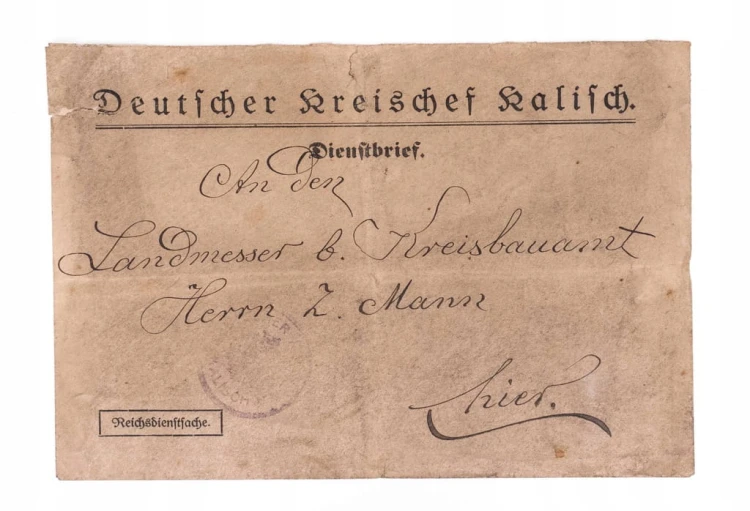 Deutscher Kreischef Kalisch.
Dienstbrief.
An den
Landmesser b. Kreisbauamt
Herrn Z. Mann
hier.
Reichsdienstsache.